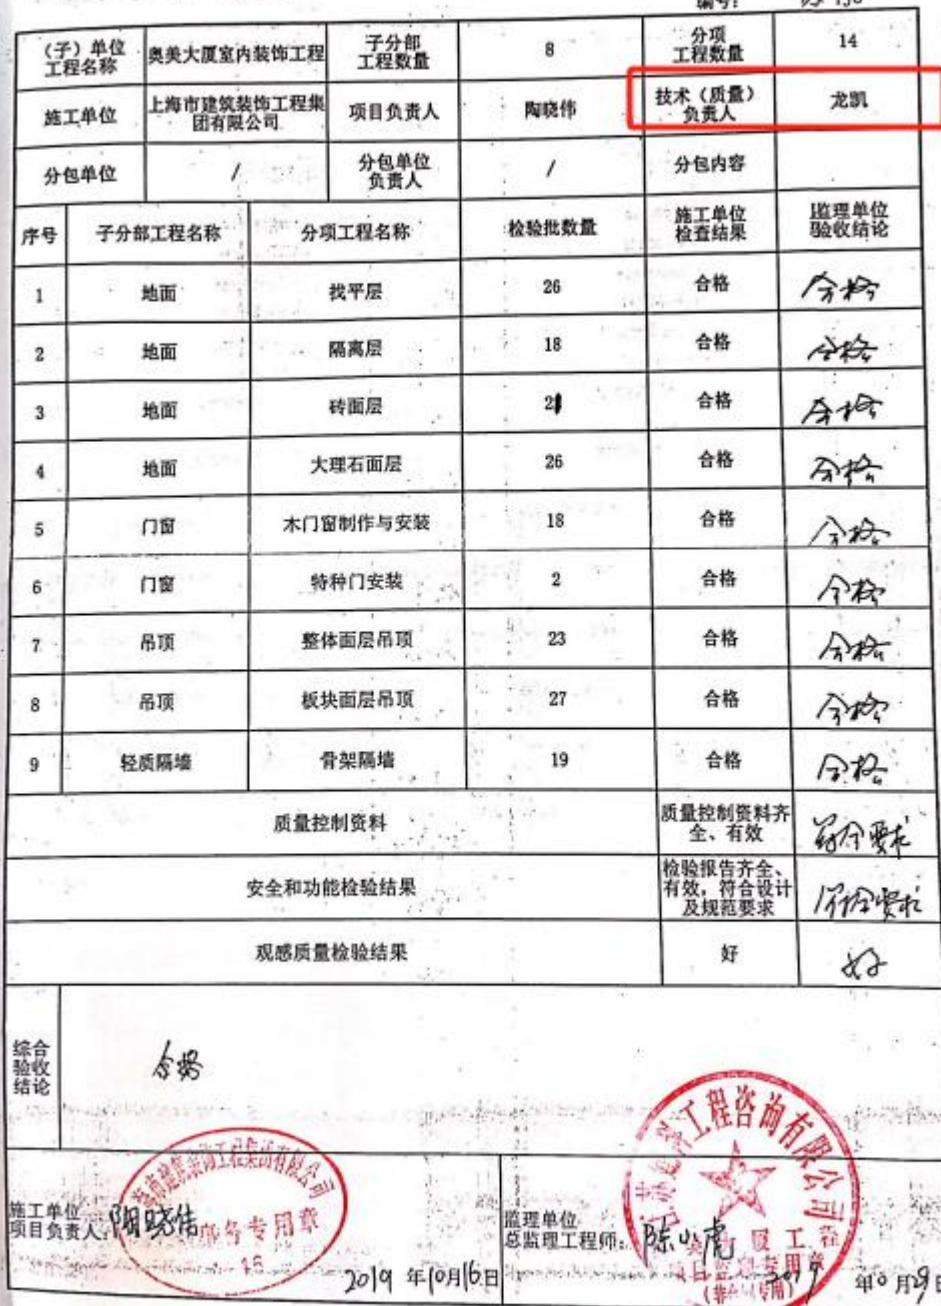 编号:
(子)单位工程名称 奥美大厦室内装饰工程 子分部工程数量 8 分项工程数量 14
施工单位 上海市建筑装饰工程集团有限公司 项目负责人 陶晓伟 技术(质量)负责人 龙凯
分包单位 / 分包单位负责人 / 分包内容
序号 子分部工程名称 分项工程名称 检验批数量 施工单位检查结果 监理单位验收结论
1 地面 找平层 26 合格 合格
2 地面 隔离层 18 合格 合格
3 地面 砖面层 21 合格 合格
4 地面 大理石面层 26 合格 合格
5 门窗 木门窗制作与安装 18 合格 合格
6 门窗 特种门安装 2 合格 合格
7 吊顶 整体面层吊顶 23 合格 合格
8 吊顶 板块面层吊顶 27 合格 合格
9 轻质隔墙 骨架隔墙 19 合格 合格
质量控制资料 质量控制资料齐全、有效 符合要求
安全和功能检验结果 检验报告齐全、有效,符合设计及规范要求 符合要求
观感质量检验结果 好 好
综合验收结论 合格
施工单位项目负责人: 陶晓伟
专用章
15
2019 年10月16日
工程咨询有限公司
监理单位总监理工程师: 陈小虎
2019 年10月19日